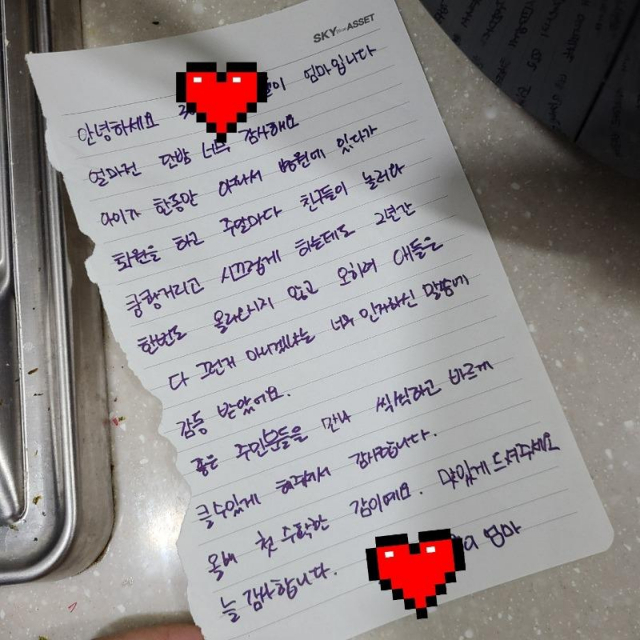 SKY THE ASSET
안녕하세요 이 엄마입니다
얼마전 단밤 너무 감사해요
아이가 한동안 아파서 병원에 있다가
퇴원을 하고 주말마다 친구들이 놀러와
쿵쾅거리고 시끄럽게 하는데도 2년간
한번도 올라오시지 않고 오히려 애들은
다 그런거 아니겠냐는 너무 인자하신 말씀에
감동 받았어요.
좋은 주민분들을 만나 씩씩하고 바르게
클수있게 해주셔서 감사합니다.
올해 첫 수확한 감이에요. 맛있게 드셔주세요
늘 감사합니다. 엄마